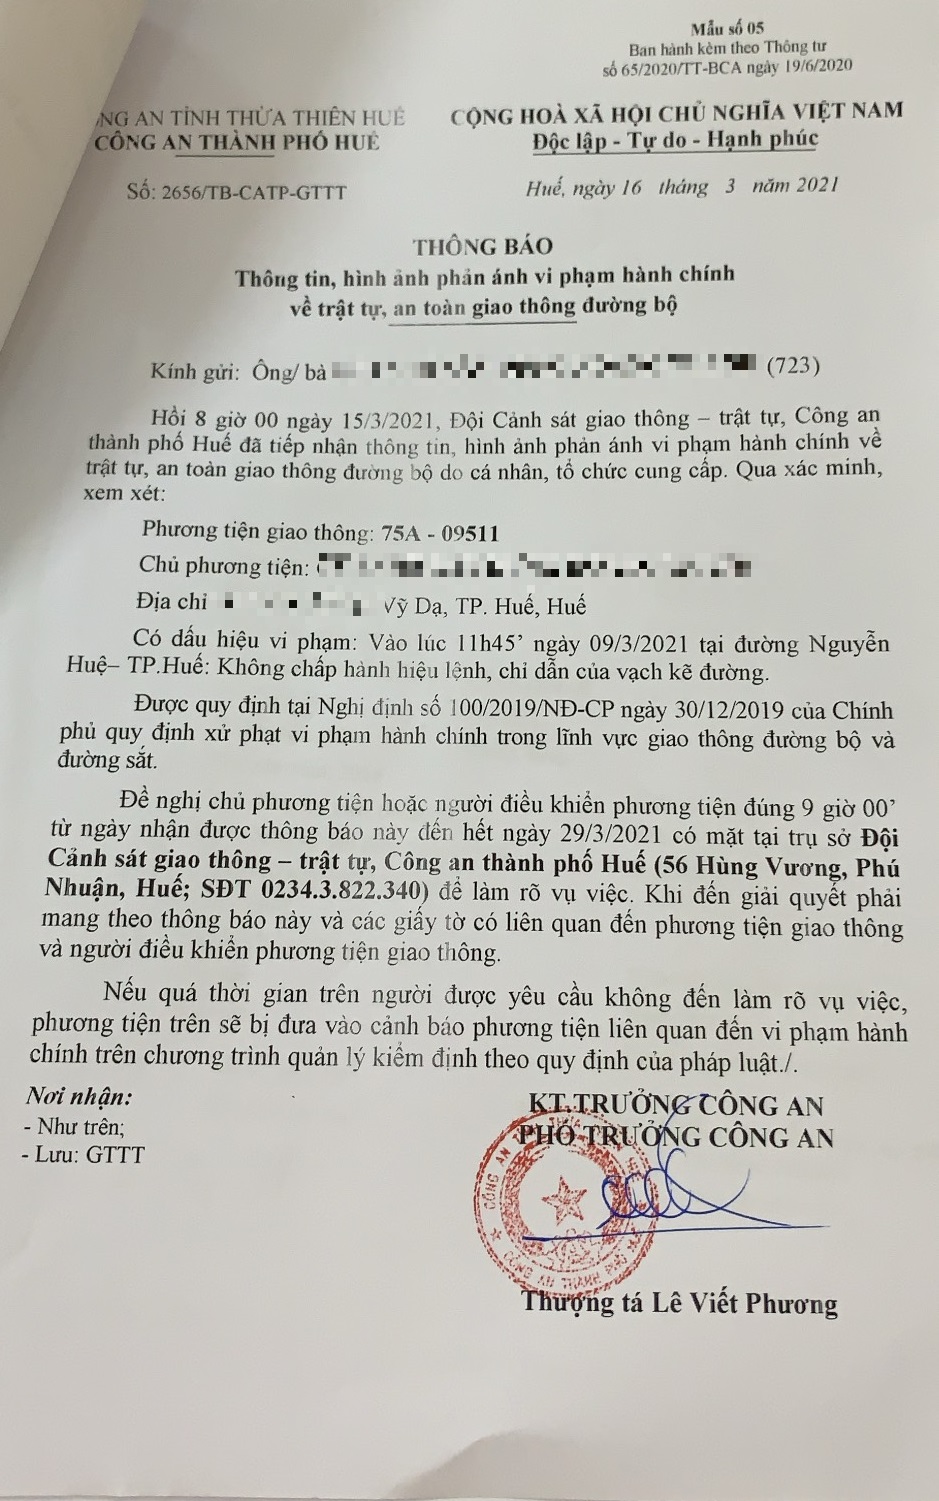 Mẫu số 05
Ban hành kèm theo Thông tư
số 65/2020/TT-BCA ngày 19/6/2020
NG AN TỈNH THỪA THIÊN HUẾ
CÔNG AN THÀNH PHỐ HUẾ
CỘNG HOÀ XÃ HỘI CHỦ NGHĨA VIỆT NAM
Độc lập - Tự do - Hạnh phúc
Số: 2656/TB-CATP-GTTT
Huế, ngày 16 tháng 3 năm 2021
THÔNG BÁO
Thông tin, hình ảnh phản ánh vi phạm hành chính
về trật tự, an toàn giao thông đường bộ
Kính gửi: Ông/ bà (723)
Hồi 8 giờ 00 ngày 15/3/2021, Đội Cảnh sát giao thông – trật tự, Công an
thành phố Huế đã tiếp nhận thông tin, hình ảnh phản ánh vi phạm hành chính về
trật tự, an toàn giao thông đường bộ do cá nhân, tổ chức cung cấp. Qua xác minh,
xem xét:
Phương tiện giao thông: 75A - 09511
Chủ phương tiện:
Địa chỉ Vỹ Dạ, TP. Huế, Huế
Có dấu hiệu vi phạm: Vào lúc 11h45’ ngày 09/3/2021 tại đường Nguyễn
Huệ– TP.Huế: Không chấp hành hiệu lệnh, chỉ dẫn của vạch kẽ đường.
Được quy định tại Nghị định số 100/2019/NĐ-CP ngày 30/12/2019 của Chính
phủ quy định xử phạt vi phạm hành chính trong lĩnh vực giao thông đường bộ và
đường sắt.
Đề nghị chủ phương tiện hoặc người điều khiển phương tiện đúng 9 giờ 00’
từ ngày nhận được thông báo này đến hết ngày 29/3/2021 có mặt tại trụ sở Đội
Cảnh sát giao thông – trật tự, Công an thành phố Huế (56 Hùng Vương, Phú
Nhuận, Huế; SĐT 0234.3.822.340) để làm rõ vụ việc. Khi đến giải quyết phải
mang theo thông báo này và các giấy tờ có liên quan đến phương tiện giao thông
và người điều khiển phương tiện giao thông.
Nếu quá thời gian trên người được yêu cầu không đến làm rõ vụ việc,
phương tiện trên sẽ bị đưa vào cảnh báo phương tiện liên quan đến vi phạm hành
chính trên chương trình quản lý kiểm định theo quy định của pháp luật./.
Nơi nhận:
- Như trên;
- Lưu: GTTT
KT.TRƯỞNG CÔNG AN
PHÓ TRƯỞNG CÔNG AN
CÔNG AN THÀNH PHỐ
Thượng tá Lê Viết Phương